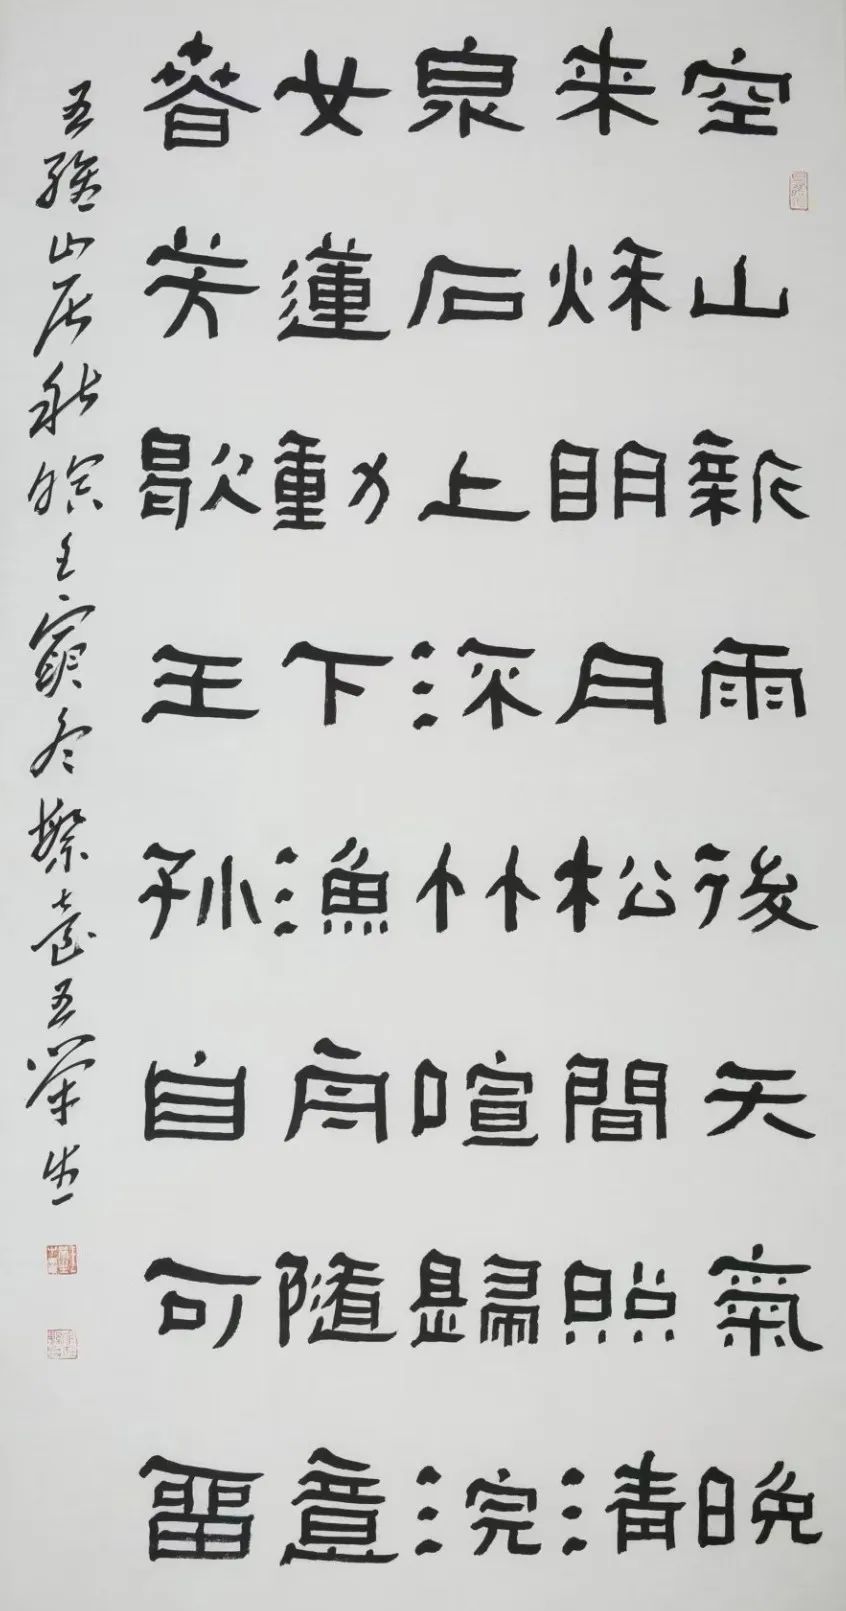 空山新雨後天氣晚
来秌眀月松間照清
泉石上流竹喧歸浣
女蓮動下漁舟隨意
春芳歇王孙自可留
王維山居秋暝壬寅冬繁臺王荣生